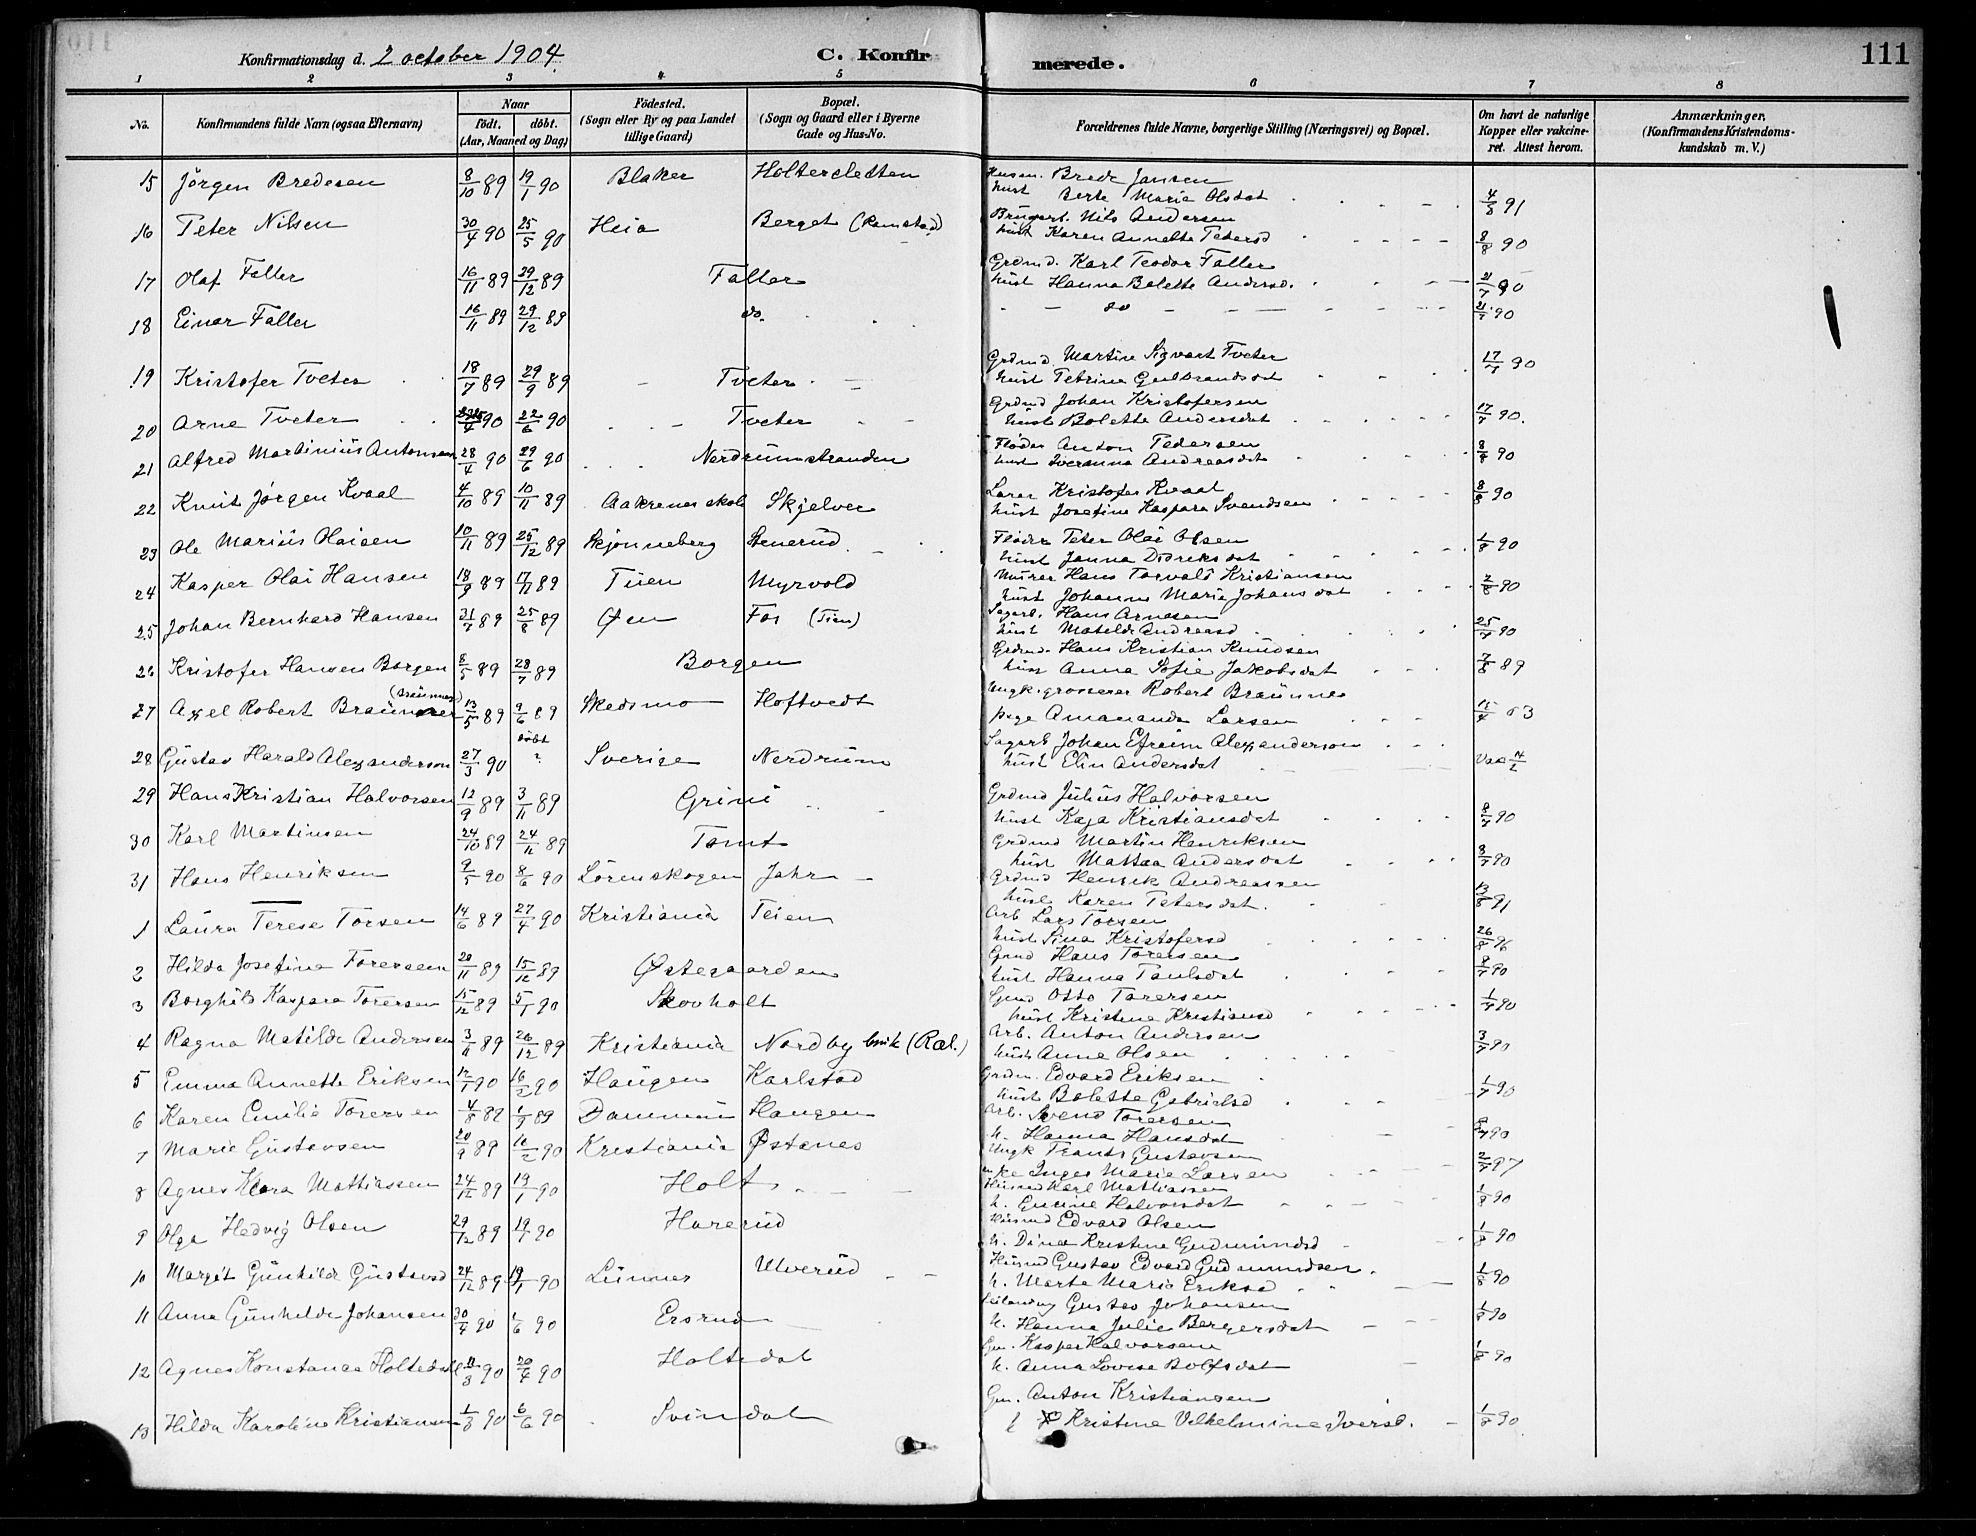 Konfirmationsdag d. 2 october 1904
C. Konfirmerede.
111
1 2 3 4 5 6 7 8
No.
Konfirmandens fulde Navn (ogsaa Efternavn)
Naar
födt. döbt.
(Aar, Maaned og Dag)
Födested.
(Sogn eller By og paa Landet
tillige Gaard)
Bopæl.
(Sogn og Gaard eller i Byerne
Gade og Hus-No.
Forældrenes fulde Navne, borgerlige Stilling (Næringsvei) og Bopæl.
Om havt de naturlige
Kopper eller vakcine-
ret. Attest herom.
Anmærkninger,
(Konfirmandens Kristendoms-
kundskab m. V.)
15 Jörgen Bredesen 8/10 89 19/1 90 Blaker Holtersletten Husm. Brede Jansen
hust Berte Marie Olsdat 4/8 91
16 Peter Nilsen 30/4 90 25/5 90 Heia Berget (Ramstad) Brugerb. Nils Andersen
hust Karen Annette Pedersd 8/8 90
17 Olaf Faller 16/11 89 29/12 89 Faller Grdmd. Karl Teodor Faller
hust Hanna Bolette Andersd. 21/7 90
18 Einar Faller 16/11 89 29/12 89 do. do 21/7 90
19 Kristofer Tveter 18/7 89 29/9 89 Tveter Grdmd Martin Sigvart Tveter
hust Petrine Gulbrandsdat 17/7 90
20 Arne Tveter 90 22/6 90 Tveter Grdmd Johan Kristofersen
hust Bolette Andersdat 17/7 90.
21 Alfred Martinius Antonsen 28/4 90 29/6 90 Nerdrumstranden Fløder Anton Pedersen
hust Iveranna Andreasdat 8/8 90
22 Knut Jørgen Kvaal 4/10 89 10/11 89 Aakrenes skole Skjelver Lærer Kristofer Kvaal
hust Josefine Kaspara Svendsen 8/8 90
23 Ole Marius Olaisen 10/11 89 25/12 89 Skjønneberg Stenerud Fløder Peter Olai Olsen
hust Janna Didriksdat 1/8 90
24 Kasper Olai Hansen 18/9 89 17/11 89 Tuen Myrvold Murer Hans Torvald Kristiansen
hust Johanne Marie Johansdat 2/8 90
25 Johan Bernhard Hansen 31/7 89 25/8 89 Øen Fos (Tien) Sagarb. Hans Arnesen
hust Matilde Andreasd 25/7 90
26 Kristofer Hansen Borgen 8/5 89 28/7 89 Borgen Grdmd. Hans Kristian Knudsen
hust Anna Sofie Jakobsdat 7/8 89
27 Axel Robert Braünner (Braünnes) 13/5 89 9/6 89 Skedsmo Hoftvedt Ungk. grosserer Robert Braünnes
pige Amananda Larsen
28 Gustav Harald Alexanderson 27/3 90 döbt ? Sverige Nerdrum Sagarb Johan Efraim Alexanderson
hust Elin Andersdat
29 Hans Kristian Halvorsen 12/9 89 3/11 89 Grini Grdmd Julius Halvorsen
hust Kaja Kristiansdat 8/7 90
30 Karl Martinsen 24/10 89 24/11 89 Tomt Grdmd Martin Henriksen
hust Mattea Andersdat 3/7 90
31 Hans Henriksen 9/5 90 8/6 90 Lørenskogen Jahr Grdmd Henrik Andreassen
hust Karen Petersdat. 13/8 91
1 Laura Terese Torsen 14/6 89 27/4 90 Kristiania Teien Arb Lars Torsen
hust Sina Kristofersd 26/8 96
2 Hilda Josefine Torersen 20/11 89 15/12 89 Østegaarden Grmd Hans Torersen
hust Hanna Paulsdat 8/7 90
3 Borghild Kaspara Torersen 15/12 89 5/1 90 Skovholt Gmd Otto Torersen
hust Kristine Kristiansd 1/7 90
4 Ragna Matilde Andersen 3/11 89 26/12 89 Kristiania Nordby bruk (Ræl.) Arb. Anton Andersen
hust Anne Olsen 3/7 90
5 Emma Annette Eriksen 12/1 90 16/2 90 Haugen Karlstad Grdm. Edvard Eriksen
hust Bolette Gabrielsd 1/7 90
6 Karen Emilie Torersen Dammen Haugen Arb. Svend Torersen
h. Hanna Hansdat
7 Marie Gustavsen 20/9 89 16/2 90 Kristiania Østenes Ungk Frants Gustavsen
enke Inger Marie Larsen 2/7 97
8 Agnes Klara Mattiassen 24/12 89 19/1 90 Holt Husmd Karl Mattiassen
h. Gunine Halvorsdat 1/8 90
9 Olga Hedvig Olsen 29/12 89 19/1 90 Harerud Husmd Edvard Olsen
h. Dina Kristine Gudmundsd 1/8 90
10 Margit Gunhilda Gustavsd 24/12 89 19/1 90 Lunner Ulverud Husmd Gustav Edvard Gudmundsen.
h. Marte Marie Eriksd 1/8 90
11 Anna Gunhilda Johansen 30/4 90 1/6 90 Ersrud Gustav Johansen
h. Hanna Julie Bergersdat 1/8 90
12 Agnes Konstance Holtedahl 11/3 90 20/4 90 Holtedal Gm. Kasper Halvorsen
h. Anna Lovise Rolfsdat 1/8 90
13 Hilda Karoline Kristiansen 1/3 90 6/6 90 Svindal Gm. Anton Kristiansen
Kristine Vilhelmine Iversd. 1/8 90